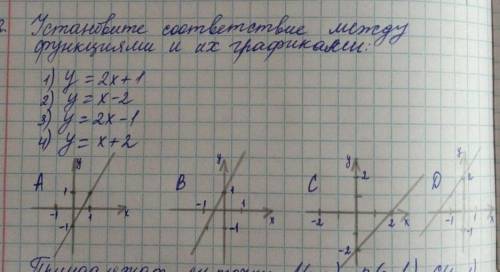 2. Установите соответствие между
функциями и их графиками:
1) y = 2x+1
2) y = x-2
3) y = 2x-1
4) y = x+2
A y 1 -1 1 x -1
B y 1 -1 1 x -1
C y 2 -2 2 x -2
D y 2
Принадлежат